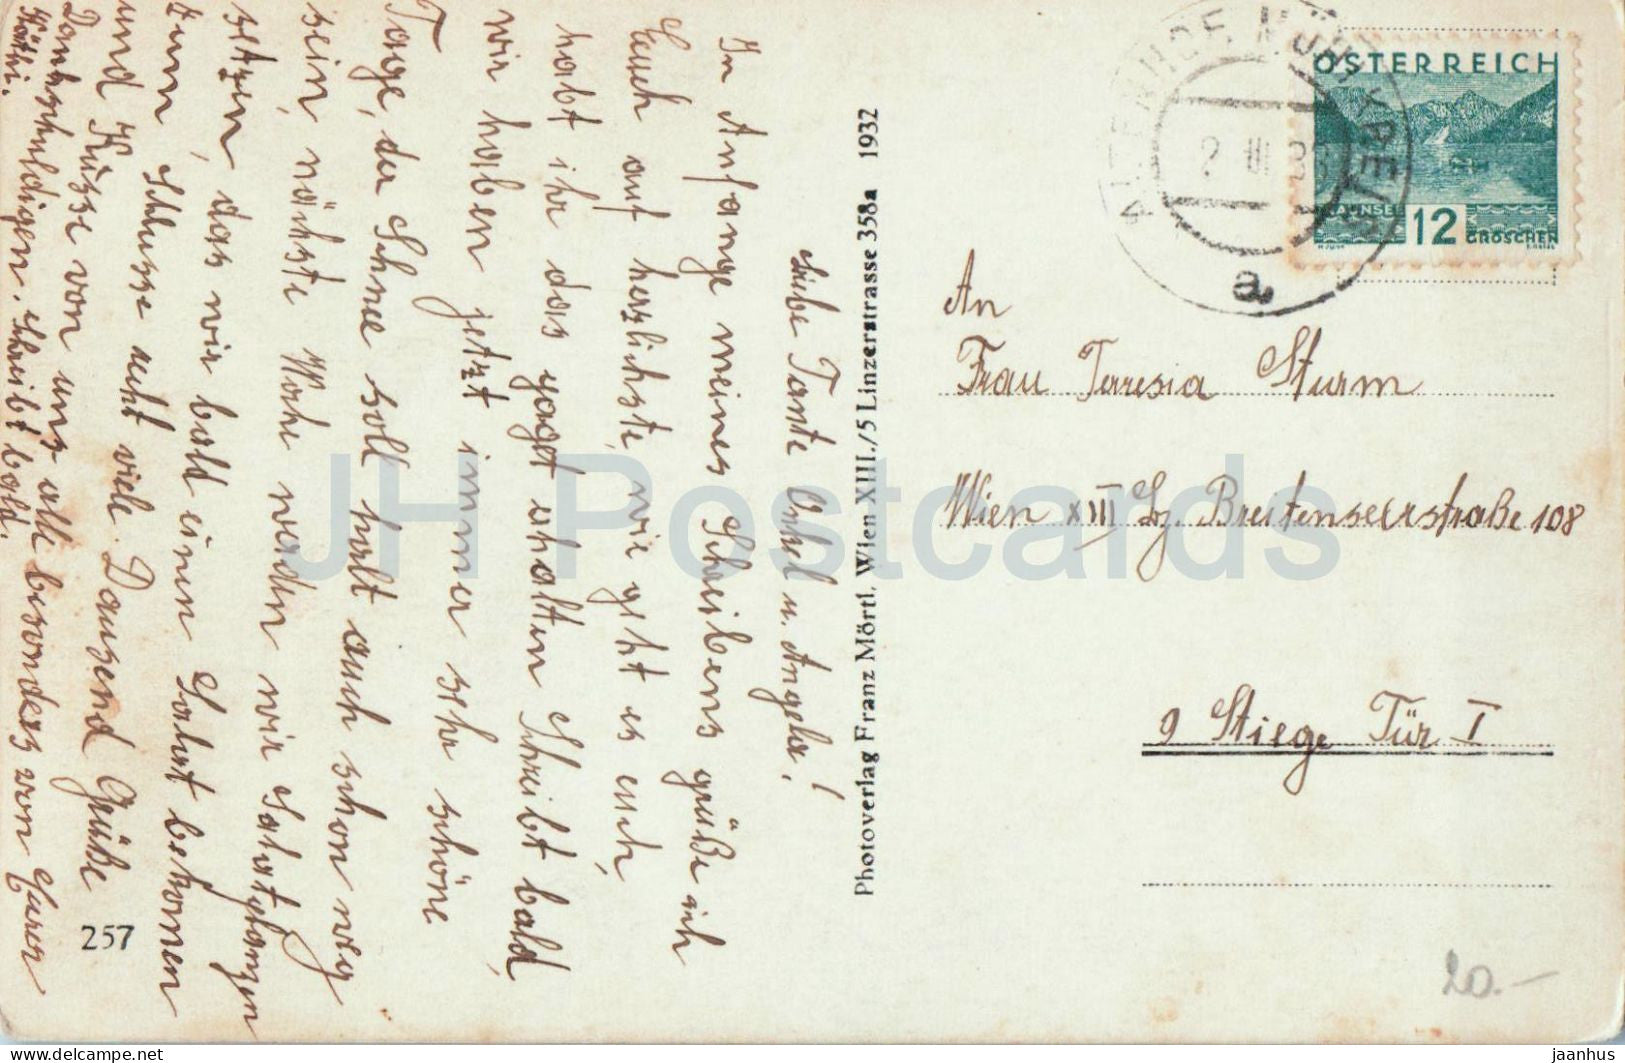 Liebe Tante Onkel u. Angela!
In Anfange meines Schreibens grüße ich
Euch auf herzlichste, wie geht es euch,
habt ihr das erhalten Schreibt bald,
wir haben jetzt immer sehr schöne
Tage, der Schne soll halt auch schon weg
sein, nächste Woche werden wir
setzen, das wir bald einen Salat bekomen
Zum Schlusse recht viele Dausend Grüße
und Küsse von uns alle besonders von Eurer
schuldigen. Schreibt bald.
257
Photoverlag Franz Mörtl, Wien XIII./5 Linzerstrasse 358a 1932
ÖSTERREICH
12
GROSCHEN
2 III
a
An
Frau Teresia Sturm
Wien XIII Lz. Breitenseerstraße 108
9 Stiege Tür I
20.-
JH Postcards
© www.delcampe.net
jaanhus